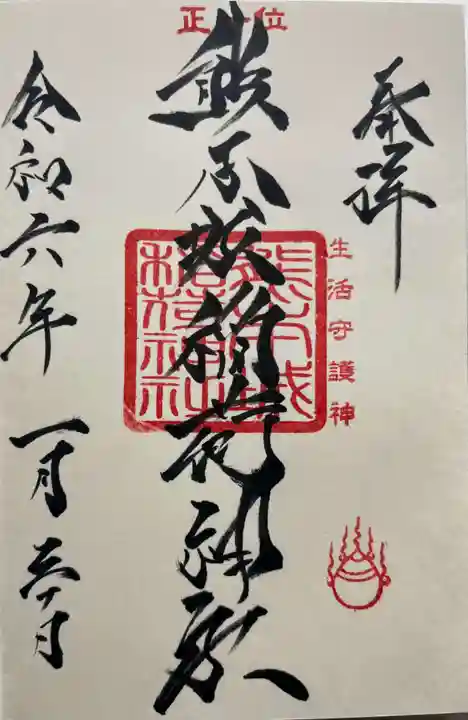 正一位
奉拝
熊本城稲荷神社
生活守護神
令和六年 一月